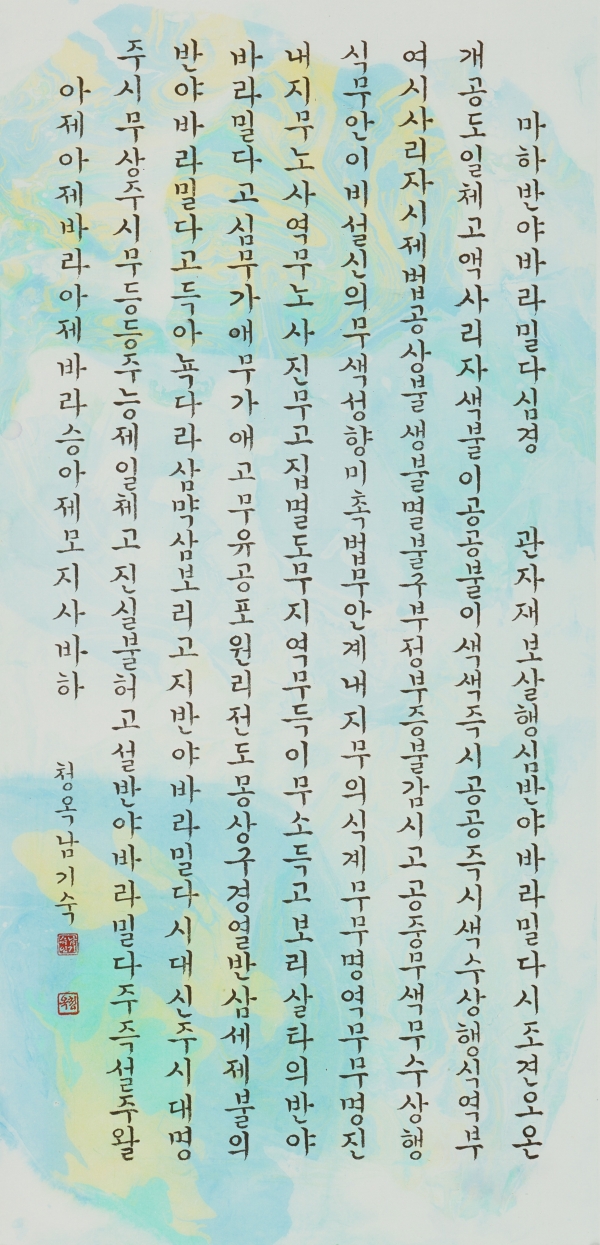 마하반야바라밀다심경 관자재보살행심반야바라밀다시조견오온
개공도일체고액사리자색불이공공불이색색즉시공공즉시색수상행식역부
여시사리자시제법공상불생불멸불구부정부증불감시고공중무색무수상행
식무안이비설신의무색성향미촉법무안계내지무의식계무무명역무무명진
내지무노사역무노사진무고집멸도무지역무득이무소득고보리살타의반야
바라밀다고심무가애무가애고무유공포원리전도몽상구경열반삼세제불의
반야바라밀다고득아뇩다라삼먁삼보리고지반야바라밀다시대신주시대명
주시무상주시무등등주능제일체고진실불허고설반야바라밀다주즉설주왈
아제아제바라아제바라승아제모지사바하
청옥남기숙